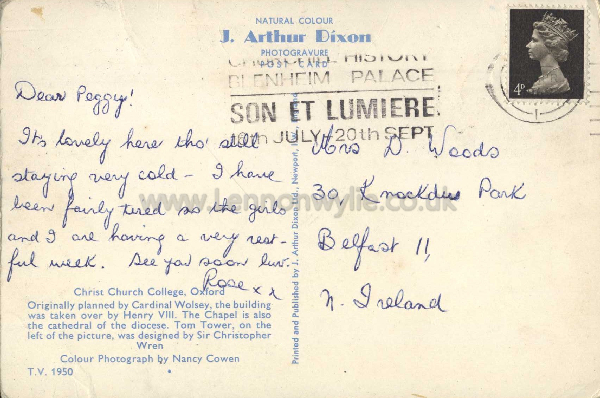 NATURAL COLOUR
J. Arthur Dixon
PHOTOGRAVURE
POST CARD
CHURCHILL HISTORY
BLENHEIM PALACE
SON ET LUMIERE
JULY 20th SEPT
4D
Dear Peggy!
It's lovely here tho' still
staying very cold - I have
been fairly tired so the girls
and I are having a very rest-
ful week. See you soon luv.
Rose x x
Mrs D. Woods
30, Knockdene Park
Belfast 11,
N. Ireland
www.Lennonwylie.co.uk
Christ Church College, Oxford
Originally planned by Cardinal Wolsey, the building
was taken over by Henry VIII. The Chapel is also
the cathedral of the diocese. Tom Tower, on the
left of the picture, was designed by Sir Christopher
Wren
Colour Photograph by Nancy Cowen
T.V. 1950
Printed and Published by J. Arthur Dixon Ltd., Newport,